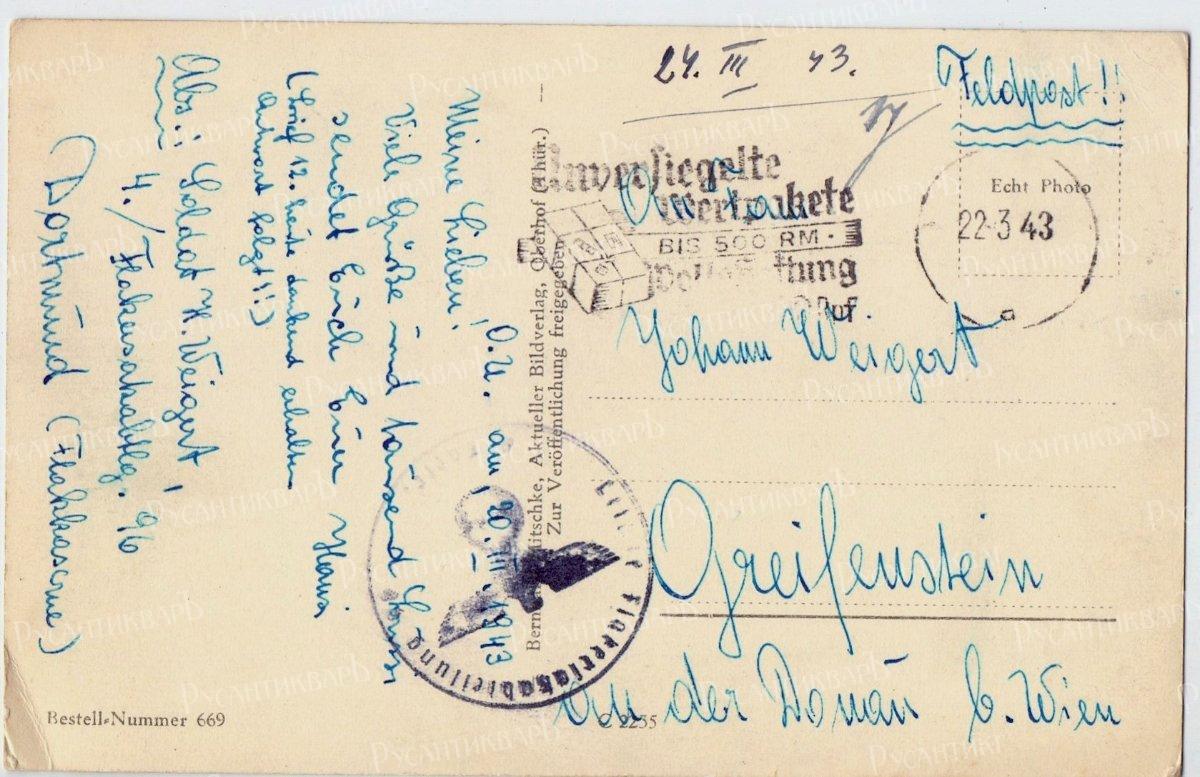 24. III 43.
Feldpost!!
Echt Photo
22·3 43
Unversiegelte
Wertpakete
BIS 500 RM·
An Fam
Johann Weigert
Greifenstein
an der Donau b. Wien
O.U. am 20.III.1943
Meine Lieben!
Viele Grüße und tausend
sendet Euch Euer Hans
(Brief 12. heute dankend erhalten
Antwort folgt!!)
Abs.: Soldat H. Weigert
4./Flakersatzabtlg. 96
Dortmund (Flakkaserne)
Aktueller Bildverlag, Oberhof (Thür.)
Zur Veröffentlichung freigegeben
Flakersatzabteilung
Bestell-Nummer 669
C 2235
РусАнтикваръ